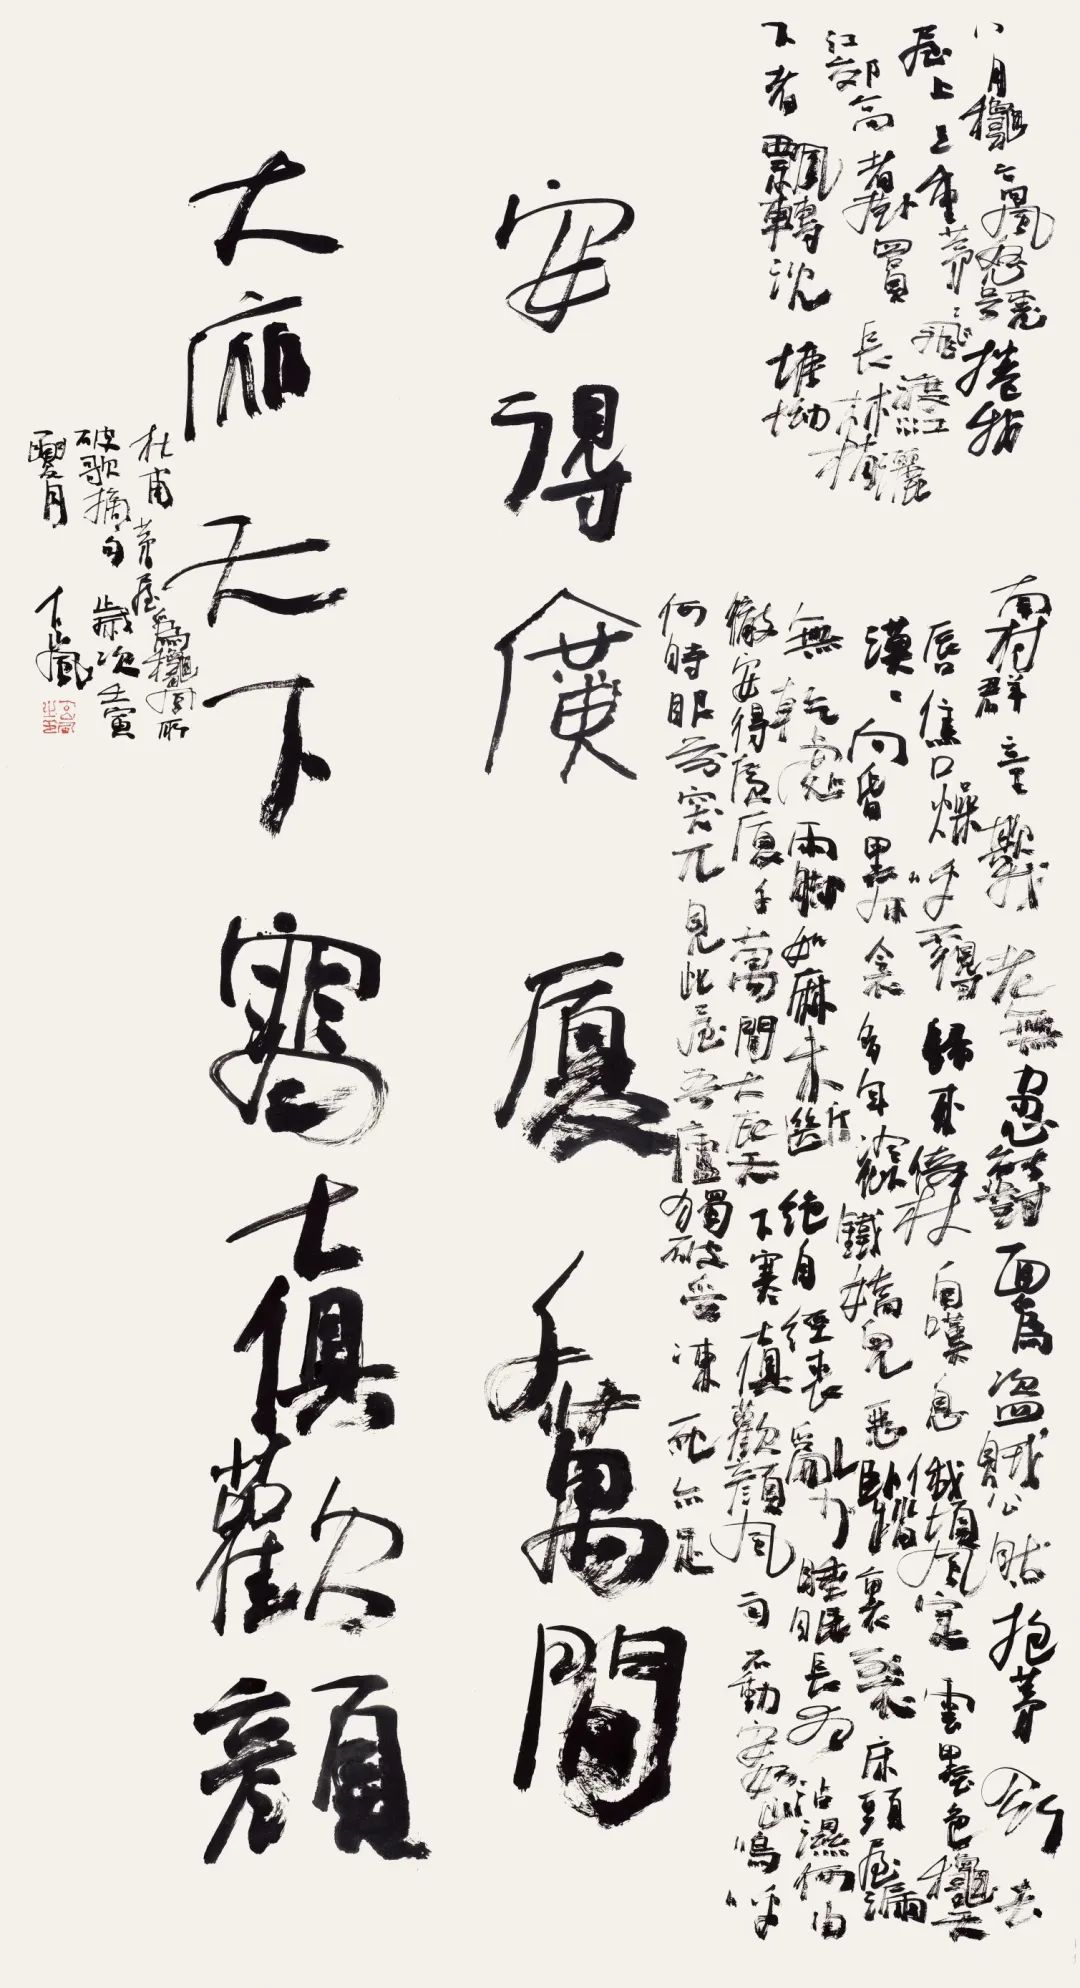 八月龝高風怒號捲我
屋上三重茅〻飛渡江灑
江郊高者挂罥長林梢
下者飄轉沈塘坳
南村群童欺我老無力忍對面為盜賊公然抱茅入竹去
唇焦口燥呼不得歸來倚杖自嘆息俄頃風定雲墨色龝天
漠〻向昏黑布衾多年冷似鐵嬌兒惡臥踏裏裂床頭屋漏
無乾處雨腳如麻未斷絕自經喪亂少睡眠長夜沾濕何由
徹安得廣廈千萬間大庇天下寒士俱歡顏風雨不動安如山嗚呼
何時眼前突兀見此屋吾廬獨破受凍死亦足
安得廣廈千萬間
大庇天下寒士俱歡顏
杜甫茅屋為龝風所
破歌摘句歲次壬寅
夏月